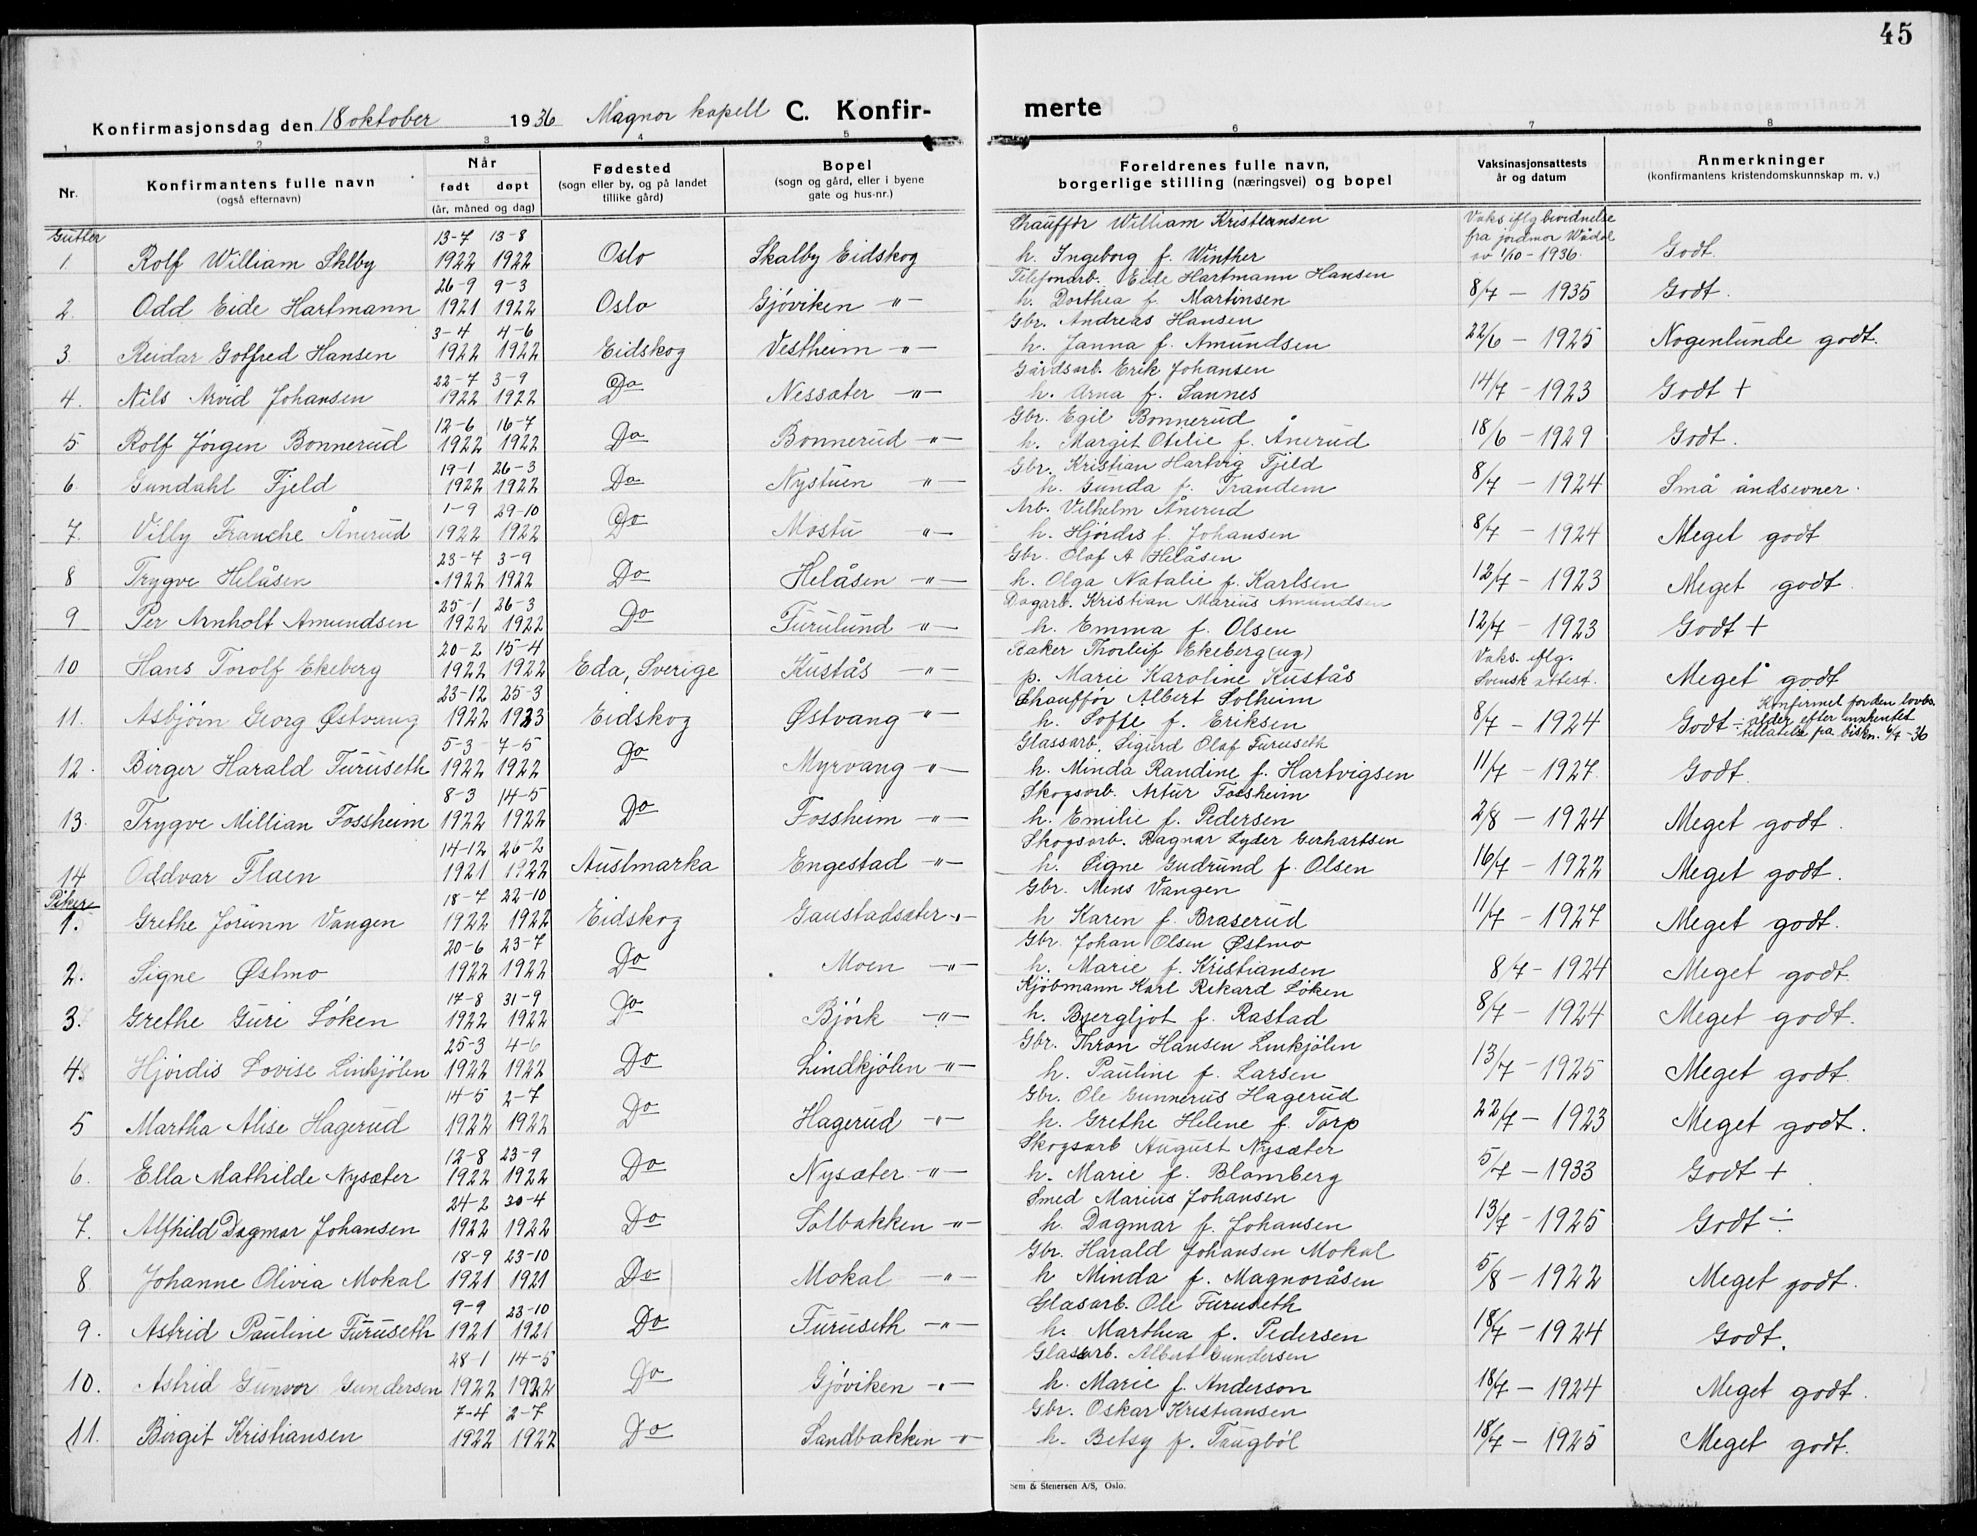 45
Konfirmasjonsdag den 18 oktober 1936 Magnor kapell C. Konfirmerte
1 2 3 4 5 6 7 8
Nr. Konfirmantens fulle navn (også efternavn) Når født døpt (år, måned og dag) Fødested (sogn eller by, og på landet tillike gård) Bopel (sogn og gård, eller i byene gate og hus-nr.) Foreldrenes fulle navn, borgerlige stilling (næringsvei) og bopel Vaksinasjonsattests år og datum Anmerkninger (konfirmantens kristendomskunnskap m. v.)
Gutter
1. Rolf William Sklby 13-7 1922 13-8 1922 Oslo Skalby Eidskog Chauffør William Kristiansen h. Ingeborg f. Winther Vaks iflg bevidnelse fra jordmor Wådal av 1/10-1936. Godt.
2. Odd Eide Hartmann 26-9 1921 9-3 1922 Oslo Gjøviken -"- Telefonarb. Eide Hartmann Hansen h. Dorthea f. Martinsen 8/7 - 1935 Godt.
3. Reidar Gotfred Hansen 3-4 1922 4-6 1922 Eidskog Vestheim -"- Gbr. Andreas Hansen h. Janna f. Amundsen 22/6 - 1925 Nogenlunde godt.
4. Nils Arvid Johansen 22-7 1922 3-9 1922 Do Nessæter -"- Gårdsarb. Erik Johansen h. Arna f. Sannes 14/7 - 1923 Godt +
5 Rolf Jørgen Bonnerud 12-6 1922 16-7 1922 Do Bonnerud -"- Gbr. Egil Bonnerud h. Margit Otilie f. Ånerud 18/6 - 1929 Godt.
6. Gundahl Fjeld 19-1 1922 26-3 1922 Do Nystuen -"- Gbr. Kristian Hartvig Fjeld h. Gunda f. Trandem 8/7 - 1924 Små åndsevner.
7. Villy Franche Ånerud 1-9 1922 29-10 1922 Do Mostu -"- Arb. Vilhelm Ånerud h. Hjørdis f. Johansen 8/7 - 1924 Meget godt
8 Trygve Helåsen 23-7 1922 3-9 1922 Do Helåsen -"- Gbr. Olaf A Helåsen h. Olga Natalie f. Karlsen 12/7 - 1923 Meget godt.
9 Per Arnholt Amundsen 25-1 1922 26-3 1922 Do Furulund -"- Dagarb. Kristian Marius Amundsen h. Emma f. Olsen 12/7 - 1923 Godt +
10 Hans Torolf Ekeberg 20-2 1922 15-4 1922 Eda, Sverige Kustås -"- Raker Thorleif Ekeberg (ug) p. Marie Karoline Kustås Vaks. iflg. Svensk attest. Meget godt
11. Asbjørn Georg Østvang 23-12 1922 25-3 1923 Eidskog Østvang -"- Chauffør Albert Solheim h. Sofie f. Eriksen 8/7 - 1924 Godt - Konfirmet for den lovbs. alder efter innhentet tillatelse fra biskn. 6/7-36
12. Birger Harald Furuseth 5-3 1922 7-5 1922 Do Myrvang -"- Glassarb. Sigurd Olaf Furuseth h. Minda Randine f. Hartvigsen 11/7 - 1927. Godt
13. Trygve Millian Fossheim 8-3 1922 14-5 1922 Do Fossheim -"- Skogsarb. Artur Fossheim h. Emilie f. Pedersen 2/8 - 1924 Meget godt.
14 Oddvar Flaen 14-12 1921 26-2 1922 Austmarka Engestad -"- Skogsarb. Ragnar Lyder Gerhartsen h. Signe Gudrund f. Olsen 16/7 - 1922 Meget godt.
Piker
1. Grethe Jorunn Vangen 18-7 1922 22-10 1922 Eidskog Gaustadsæter -"- Gbr. Mens Vangen h Karen f. Braserud 11/7 - 1927 Meget godt.
2. Signe Østmo 20-6 1922 23-7 1922 Do Moen -"- Gbr. Johan Olsen Østmo h. Marie f. Kristiansen 8/7 - 1924 Meget godt
3. Grethe Guri Løken 17-8 1922 31-9 1922 Do Bjørk -"- Kjøbmann Karl Rikard Løken h. Byergljot f. Rastad 8/7 - 1924 Meget godt.
4. Hjørdis Lovise Linkjølen 25-3 1922 4-6 1922 Do Lindkjølen -"- Gbr. Thron Hansen Linkjølen h. Pauline f. Larsen 13/7 - 1925 Meget godt
5 Martha Alise Hagerud 14-5 1922 2-7 1922 Do Hagerud -"- Gbr. Ole Gunnerus Hagerud h. Grethe Helene f. Torp 22/7 - 1923 Meget godt.
6. Ella Mathilde Nysæter 12-8 1922 23-9 1922 Do Nysæter -"- Skogsarb August Nysæter h. Marie f. Blomberg 5/7 - 1933 Godt +
7. Alfhild Dagmar Johansen 24-2 1922 30-4 1922 Do Solbakken -"- Smed Marius Johansen h. Dagmar f. Johansen 13/7 - 1925 Godt ÷
8 Johanne Olivia Mokal 18-9 1921 23-10 1921 Do Mokal -"- Gbr. Harald Johansen Mokal h Minda f. Magnoråsen 5/8 - 1922 Meget godt.
9. Astrid Pauline Furuseth 9-9 1921 23-10 1921 Do Furuseth -"- Glasarb. Ole Furuseth h. Marthea f. Pedersen 18/7 - 1924 Godt.
10. Astrid Gunvor Gundersen 28-1 1922 14-5 1922 Do Gjøviken -"- Glasarb. Albert Gundersen h. Marie f. Anderson 18/7 - 1924 Meget godt.
11. Birgit Kristiansen 7-4 1922 2-7 1922 Do Sandbakken -"- Gbr. Oskar Kristiansen h. Betsy f. Taugbøl 18/7 - 1925 Meget godt.
Sem & Stenersen A/S, Oslo.